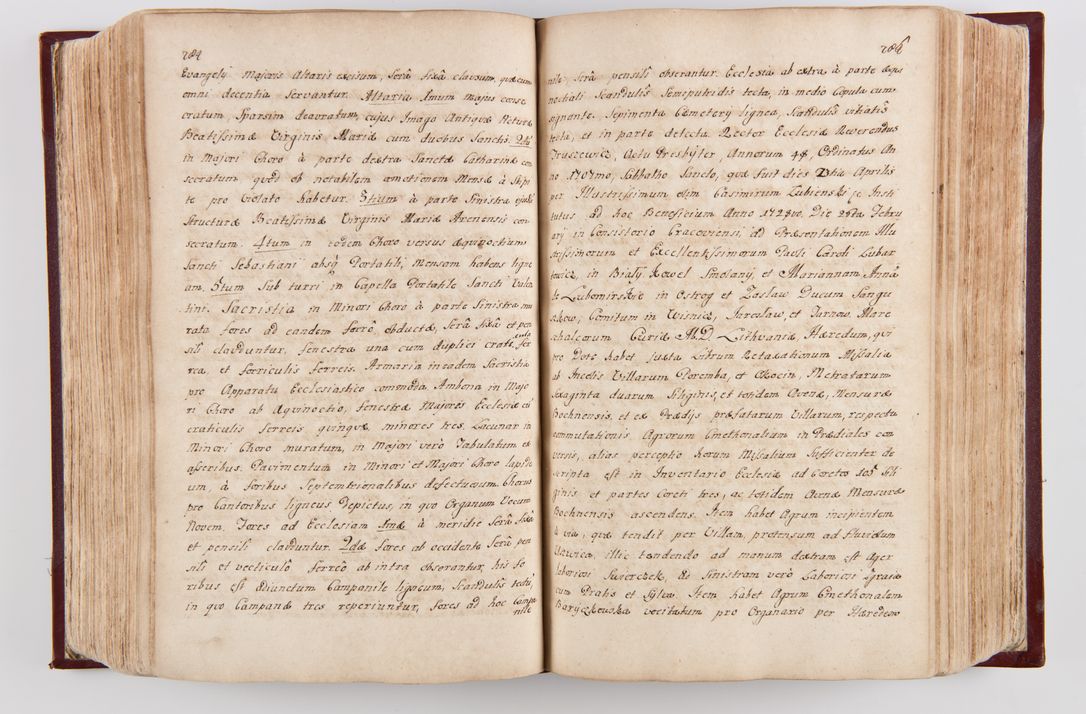 284
Evangelÿ Majoris Altaris excisum, Serâ fixâ clausum, quæ cum
omni decentia servantur. Altaria 1mum majus conse
cratum, Sparsim deauratum, cujus Imago Antiquæ Picturæ
Beatissimæ Virginis Mariæ cum duobus Sanctis. 2dũ
in Majori Choro à parte dextra Sanctæ Catharinæ con
secratum quod ob notabilem amotionem Mensæ à Stipi
te pro violato habetur. 3tium à parte Sinistra
Structuræ Beatissimæ Virginis Mariæ Arenensis con
secratum. 4tum in eodem Choro versus æquinoctium
Sancti Sebastiani absq Portatili, Mensam habens ligne
am. 5tum Sub turri in Capella Portatile Sancti Valen
tini. Sacristia in Minori Choro à parte Sinistra mu
rata fores ad eandem ferrô obductæ, Serâ fixâ et pen
sili clauduntur, fenestræ una cum duplici crate fer
rea, et ferriculis ferreis. Armaria in eadem Sacristia
pro Apparatu Ecclesiastico commoda. Ambona in Majo
ri Choro ab Aquinoctio, fenestræ Majores Ecclesiæ cũ
craticulis ferreis quinquæ, minores tres. Lacunar in
Minori Choro muratum, in Majori verò Tabulatum ex
asseribus. Pavimentum in Minori et Majori Choro lapide
um, à foribus Septemtrionalibus defectuosum. Chorus
pro Cantoribus ligneus depictus, in quo Organum Vocum
Novem. Fores ad Ecclesiam 1mæ à meridie Serâ fixâ
et pensili clauduntur. 2dæ fores ab occidente Serâ pen
sili et vecticulô ferreô ab intra obserantur, his fo
ribus est adiunctum Campanile ligneum, Scandulis tectũ,
in quo Campanæ tres reperiuntur, fores ad hoc Campa
nile
286
nile Serâ pensili obserantur. Ecclesia ab extra à parte æqui
noctiali Scandulis Semiputridis tecta, in medio Cupula cum
signante. Sepimenta Cemeterÿ lignea, Scandulis vitiatis
tecta, et in parte detecta. Rector Ecclesiæ Reverendus
Truszewicz, Actu Presbÿter, Annorum 48, Ordinatus An
no 1707mo, Sabbatho Sancto, quæ fuit dies Aprilis
per Illustrissimum olim Casimirum Lubienski Insti
tutus ad hoc Beneficium Anno 1728vo. Die 25ta Febru
arÿ in Consistorio Cracoviensi, ad Præsentationem Illu
strissimorum et Excellentissimorum Pauli Caroli Lubar
towicz, in Białÿ Kowel Smolanÿ, et Mariannam Annã
de Lubomirskie in Ostrog et Zasław Ducum Sangu
szkow, Comitum in Wisnicz, Jarosław, et Tarnow. Mare
schalcorum Curiæ M.D. Lithvaniæ, Hæredum, qui
pro Dote habet juxta Librum Retaxationum Missalia
ab Incolis Villarum Poremba, et Okocin, Metratarum
Sexaginta duarum Siliginis, et totidem Avenæ, Mensuræ
Bochnensis, et ex Prædÿs præfatarum Villarum, respectu
commutationis Agrorum Cmethonalium in Prædiales con
versis, alias perceptio horum Missalium Sufficienter de
scripta est in Inventario Ecclesiæ ad Coretos Sili
ginis et partes Coreti tres, ac totidem Avenæ Mensuræ
Bochnensis ascendens. Item habet Agrum incipientem
à via, quæ tendit per Villam, pretensum ad fluvium
Uswica, illic tendendo ad manum dextram est Ager
laboriosi Swierczek, ad Sinistram verò Laboriosi
cum Pratis et Sÿlva. Item habet Agrum Cmethonalem
Baryczkowska vocitatum pro Organario per Hæredem